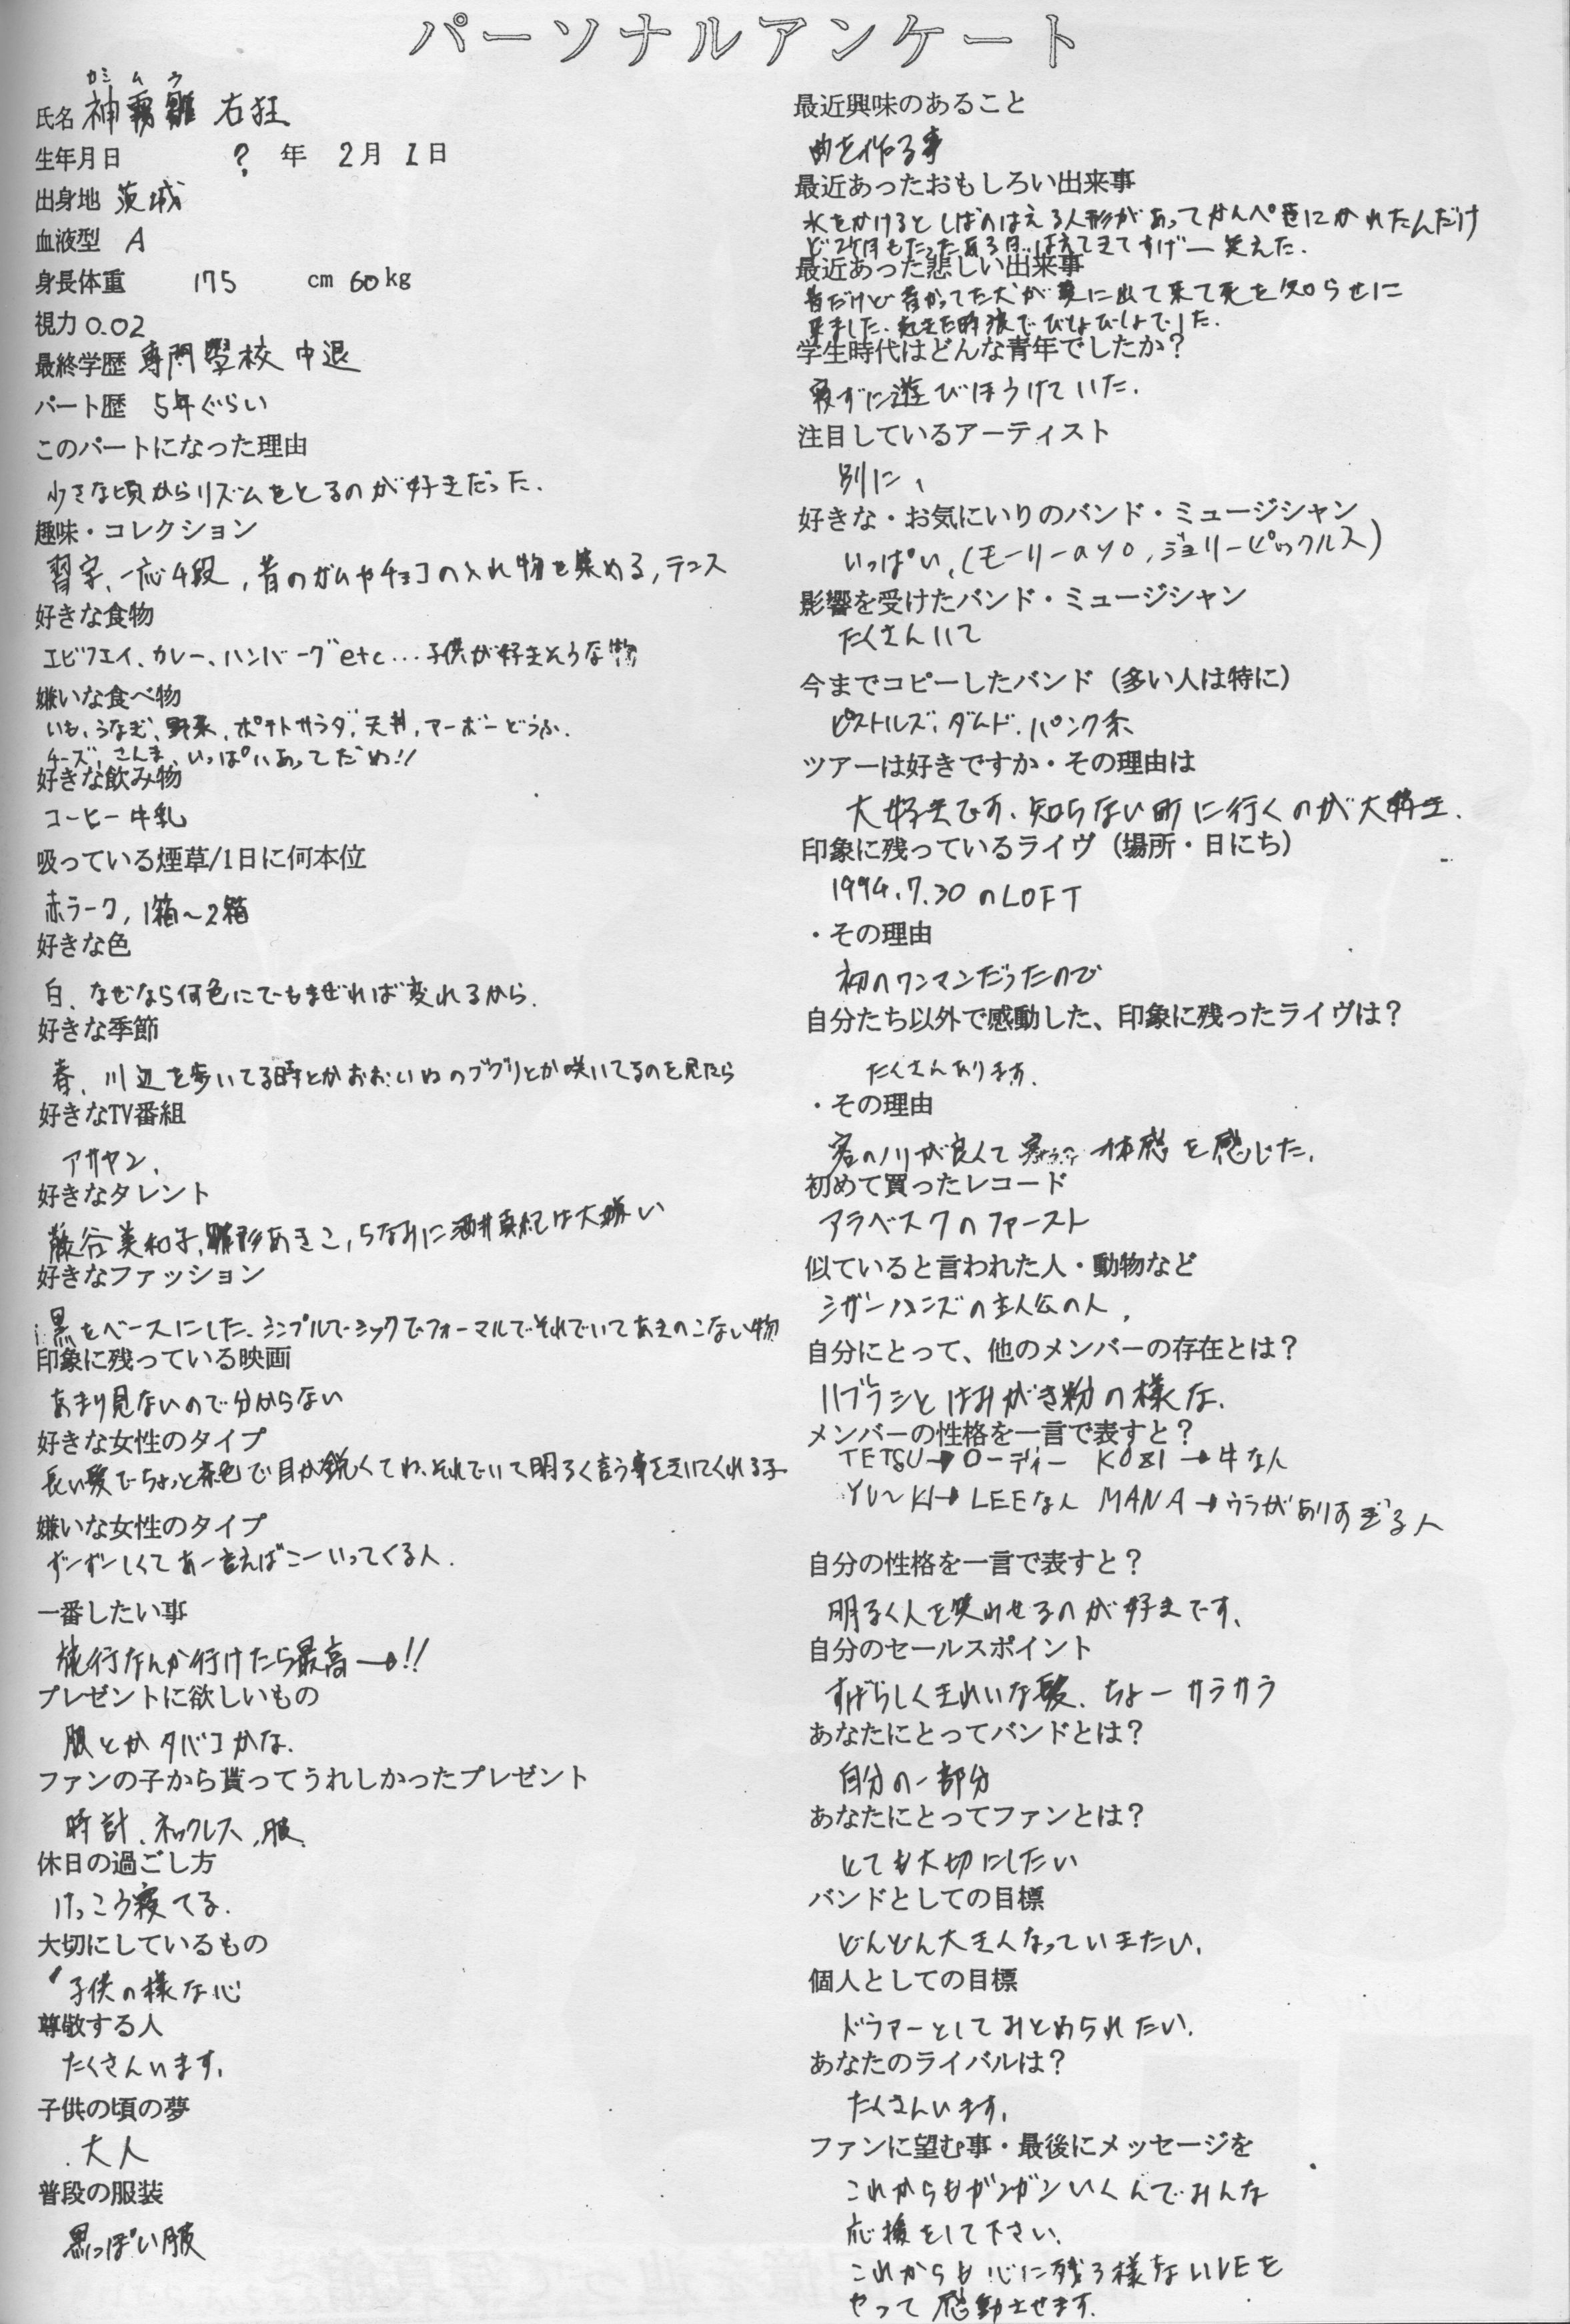 パーソナルアンケート
カミムラ
氏名 神 右狂
生年月日 ? 年 2月 1日
出身地 茨城
血液型 A
身長体重 175 cm 60kg
視力 0.02
最終学歴 専門學校 中退
パート歴 5年ぐらい
このパートになった理由
少さな頃からリズムをとるのが好きだった.
趣味・コレクション
習字、一応4段, 昔のガムやチョコの入れ物を集める, テニス
好きな食物
エビフエイ、カレー、ハンバーグetc...子供が好きそうな物
嫌いな食べ物
いも、うなぎ、野菜、ポテトサラダ、天丼, マーボーどうふ.
チーズ, さんま、いっぱいあってだめ!!
好きな飲み物
コーヒー牛乳
吸っている煙草/1日に何本位
赤ラーク, 1箱〜2箱
好きな色
白、なぜなら何色にでもまぜれば変れるから.
好きな季節
春、川辺を歩いてる時とかおおいぬのフグリとか咲いてるのを見たら
好きなTV番組
アサヤン.
好きなタレント
藤谷美和子, 雛形あきこ, ちなみに酒井真紀は大嫌い
好きなファッション
黒をベースにした、シンプルでシックでフォーマルでそれでいてあきのこない物
印象に残っている映画
あまり見ないので分からない
好きな女性のタイプ
長い髪でちょっと茶色で目が鋭くてね、それでいて明るく言う事をきいてくれる子
嫌いな女性のタイプ
ずーずーしくてあー言えばこーいってくる人.
一番したい事
旅行なんか行けたら最高→!!
プレゼントに欲しいもの
服とかタバコかな.
ファンの子から貰ってうれしかったプレゼント
時計、ネックレス、服.
休日の過ごし方
けっこう寝てる.
大切にしているもの
子供の様な心
尊敬する人
たくさんいます.
子供の頃の夢
大人
普段の服装
黒っぽい服
最近興味のあること
曲を作る事
最近あったおもしろい出来事
水をかけるとしばのはえる人形があってかんぺきにかれたんだけ
ど2ヶ月もたったある日、はえてきてすげー笑えた.
最近あった悲しい出来事
昔だけど昔かってた犬が夢に出て来て死を知らせに
来ました. 起きた時涙でびしょびしょでした.
学生時代はどんな青年でしたか？
寝ずに遊びほうけていた.
注目しているアーティスト
別に、
好きな・お気にいりのバンド・ミュージシャン
いっぱい, (モーリーayo, ジョリーピックルス)
影響を受けたバンド・ミュージシャン
たくさんいて
今までコピーしたバンド（多い人は特に）
ピストルズ, ダムド, パンク系
ツアーは好きですか・その理由は
大好きです、知らない町に行くのが大好き.
印象に残っているライヴ（場所・日にち）
1994.7.30のLOFT
・その理由
初のワンマンだったので
自分たち以外で感動した、印象に残ったライヴは？
たくさんあります.
・その理由
客のノリが良くて 一体感を感じた.
初めて買ったレコード
アラベスクのファースト
似ていると言われた人・動物など
シザーハンズの主人公の人.
自分にとって、他のメンバーの存在とは？
ハブラシとはみがき粉の様な.
メンバーの性格を一言で表すと？
TETSU→ローディー KOZI→牛なん
YU~KI→LEEなん MANA→ウラがありすぎる人
自分の性格を一言で表すと？
明るく人を笑わせるのが好きです、
自分のセールスポイント
すばらしくきれいな髪、ちょーサラサラ
あなたにとってバンドとは？
自分の一部分
あなたにとってファンとは？
とても大切にしたい
バンドとしての目標
どんどん大きくなっていきたい.
個人としての目標
ドラマーとしてみとめられたい.
あなたのライバルは？
たくさんいます.
ファンに望む事・最後にメッセージを
これからもガンガンいくんでみんな
応援をして下さい.
これからも心に残る様なLIVEを
やって感動させます.